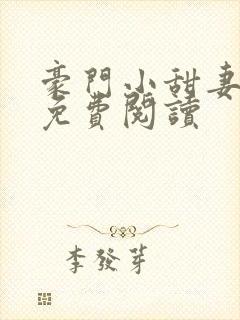 豪門小甜妻
免費閱讀
李發芽